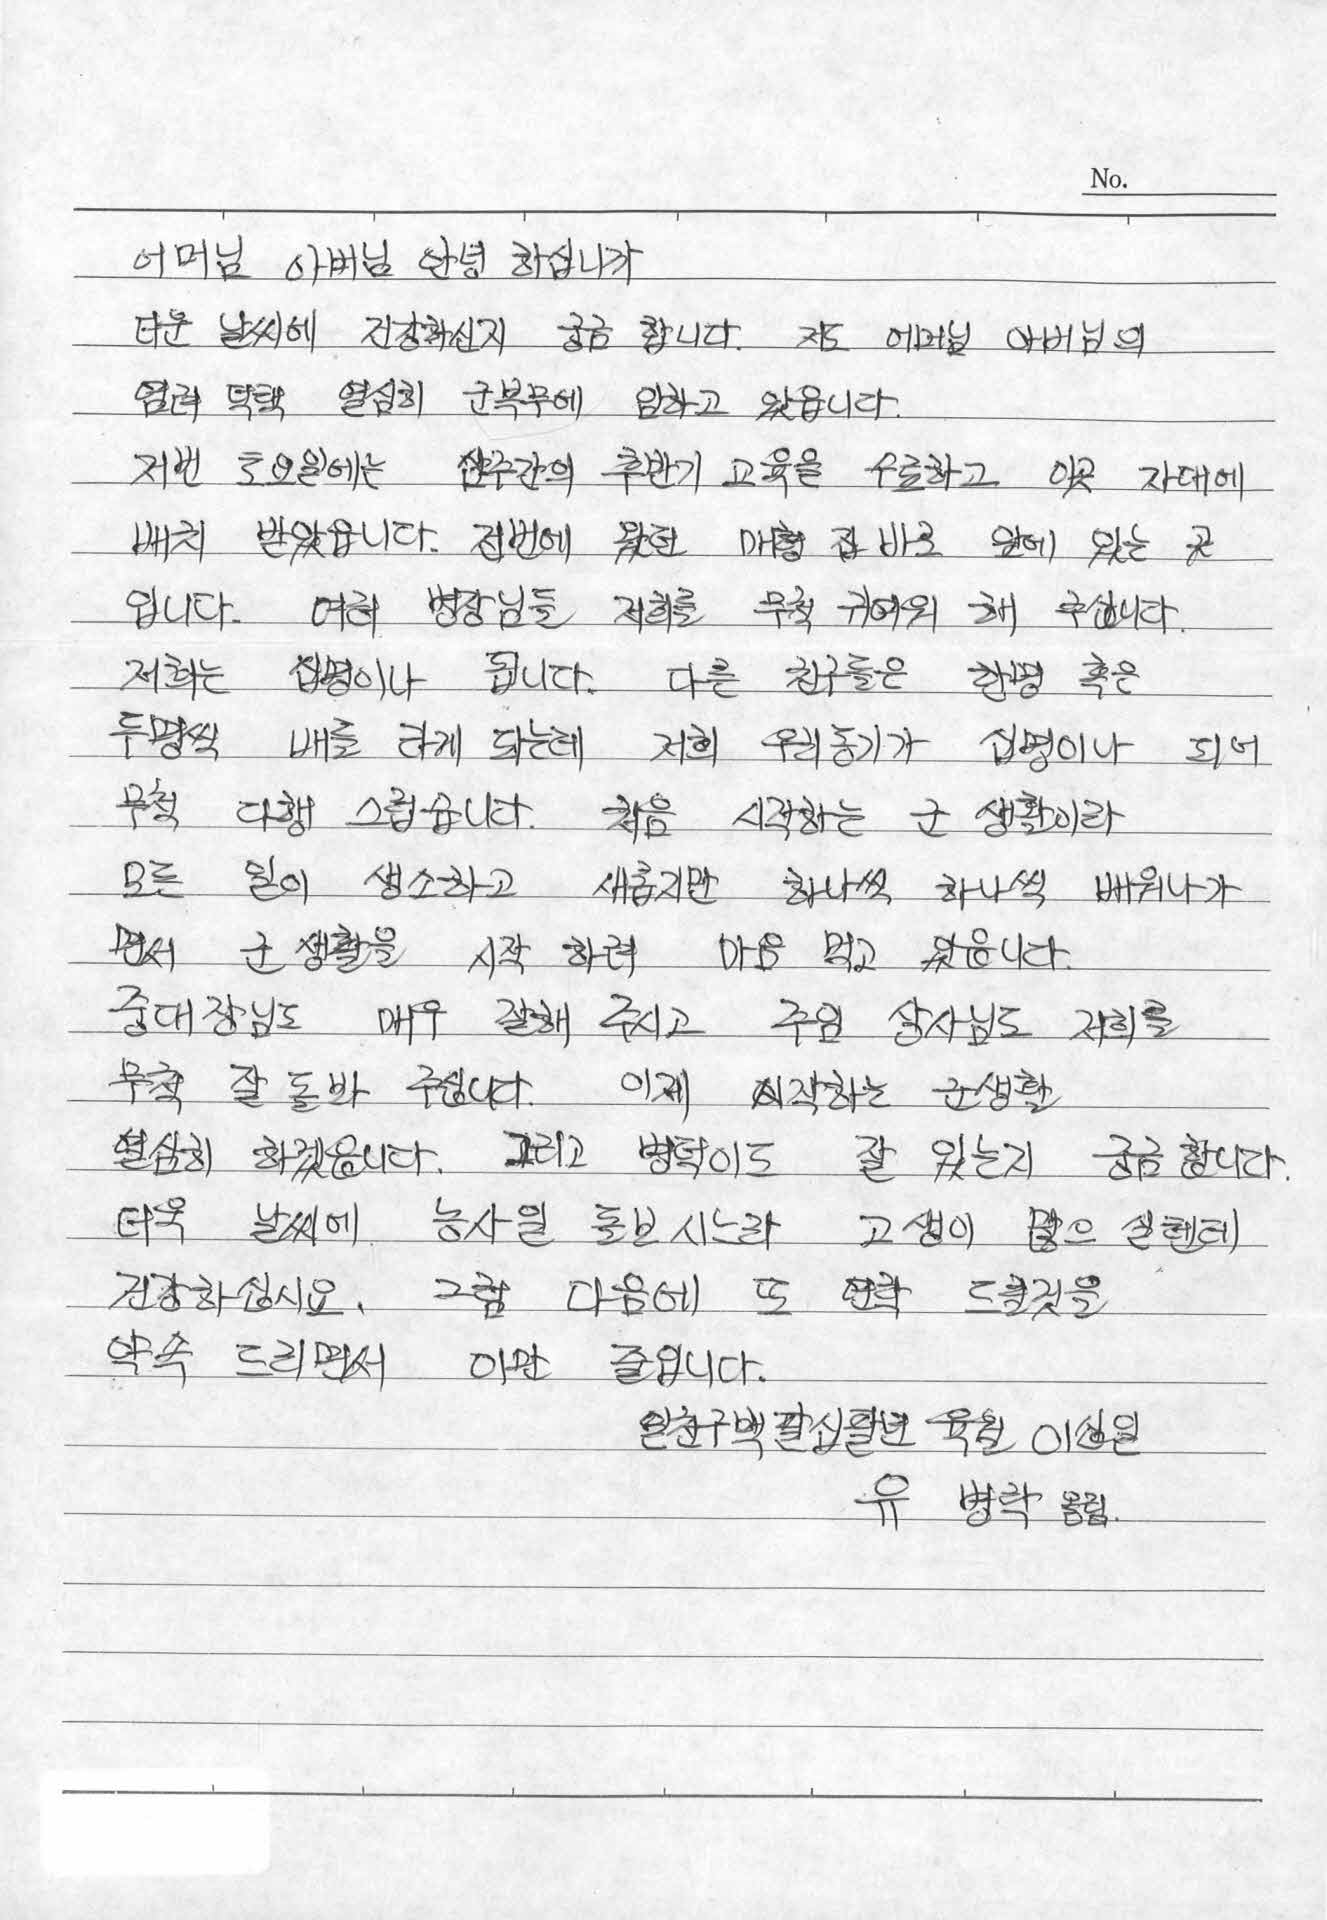 No.
어머님 아버님 안녕 하십니까
더운 날씨에 건강하신지 궁금 합니다. 저도 어머님 아버님의
염려 덕택 열심히 군복무에 임하고 있읍니다.
저번 토요일에는 십주간의 후반기 교육을 수료하고 이곳 자대에
배치 받았읍니다. 전번에 왔던 매형 집 바로 앞에 있는 곳
입니다. 여러 병장님들 저희를 무척 귀여워 해 주십니다.
저희는 십명이나 됩니다. 다른 친구들은 한명 혹은
두명씩 배를 타게 되는데 저희 우리동기가 십명이나 되어
무척 다행 스럽습니다. 처음 시작하는 군 생활이라
모든 일이 생소하고 새롭지만 하나씩 하나씩 배워나가
면서 군 생활을 시작 하려 마음 먹고 있읍니다.
중대장님도 매우 잘해 주시고 주임 상사님도 저희를
무척 잘 돌봐 주십니다. 이제 시작하는 군생활
열심히 하겠읍니다. 그리고 병탁이도 잘 있는지 궁금합니다.
더욱 날씨에 농사일 돌보시느라 고생이 많으실텐데
건강하십시요. 그럼 다음에 또 연락 드릴것을
약속 드리면서 이만 줄입니다.
일천구백팔십팔년 육월 이십일
유 병락 올림.